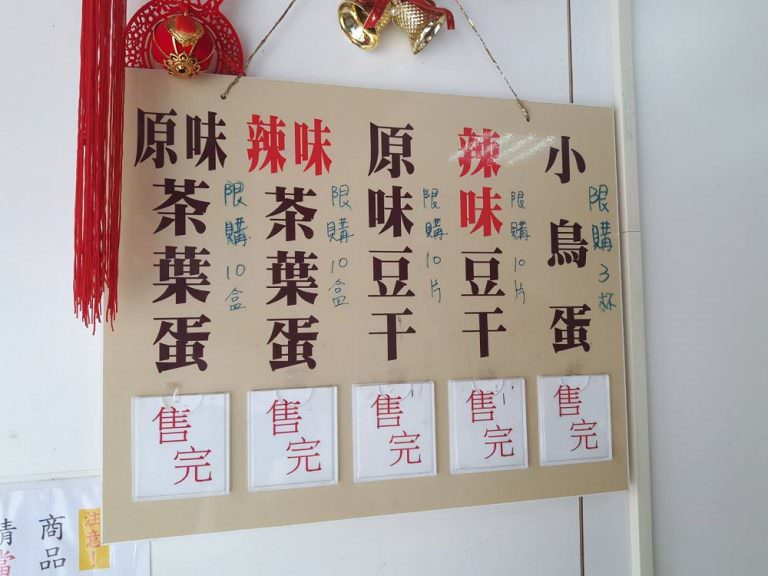 原味茶葉蛋
限購10盒
售完
辣味茶葉蛋
限購10盒
售完
原味豆干
限購10片
售完
辣味豆干
限購10片
售完
小鳥蛋
限購3杯
售完
注意!
商品
請當